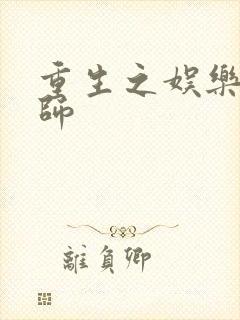 重生之娛樂
師
離負卿